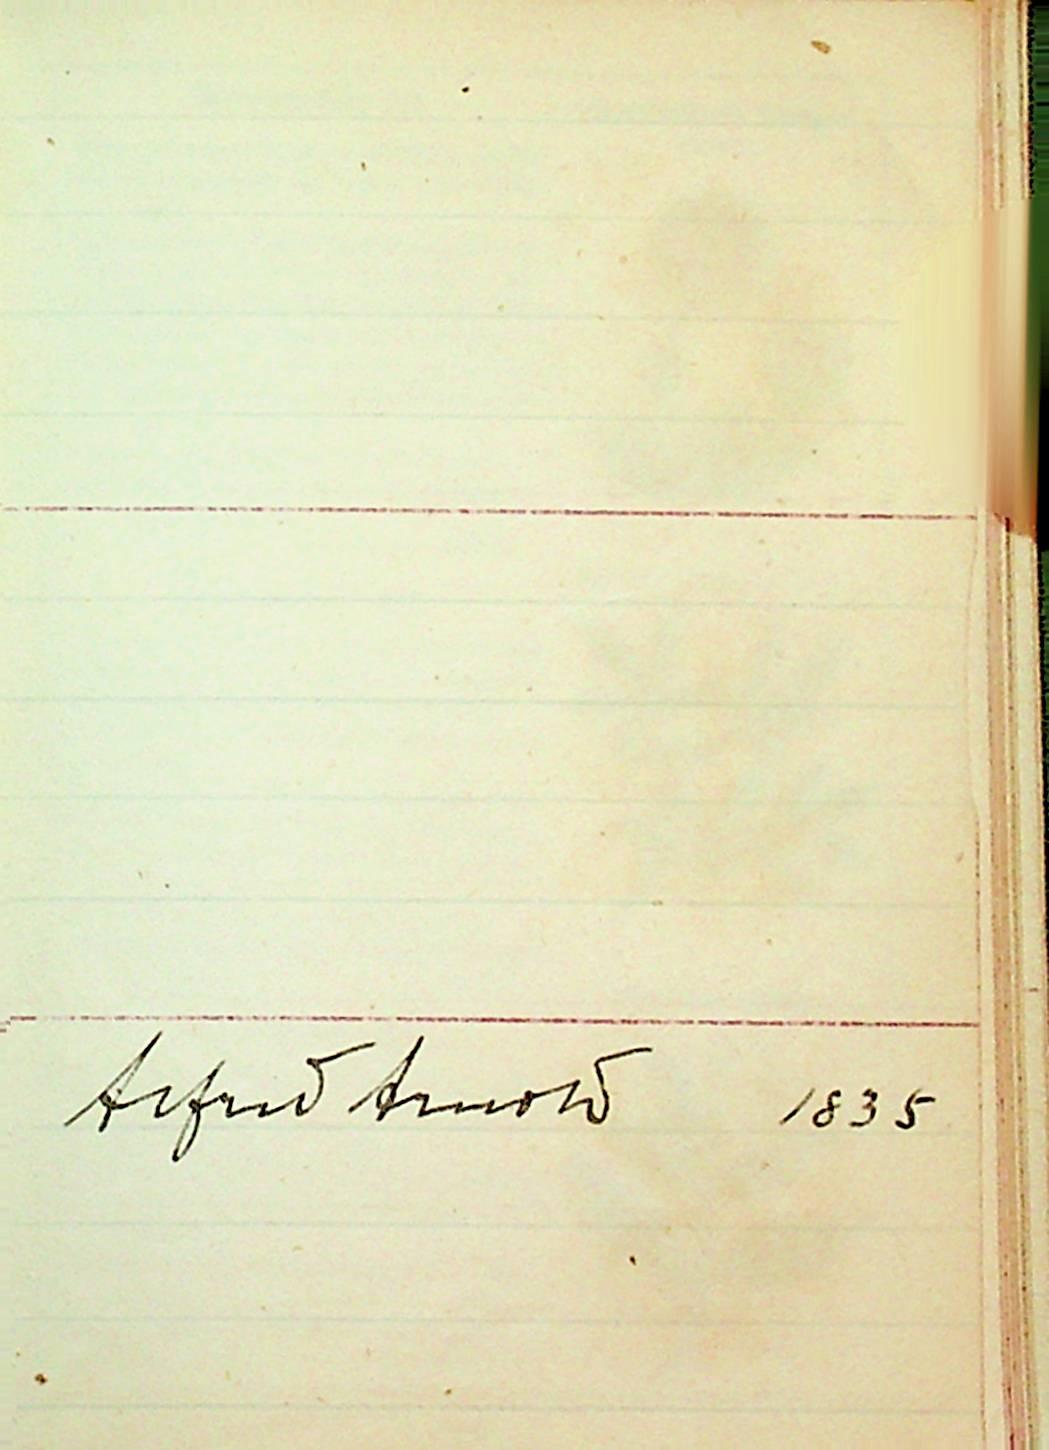 Alfred Arnold 1835